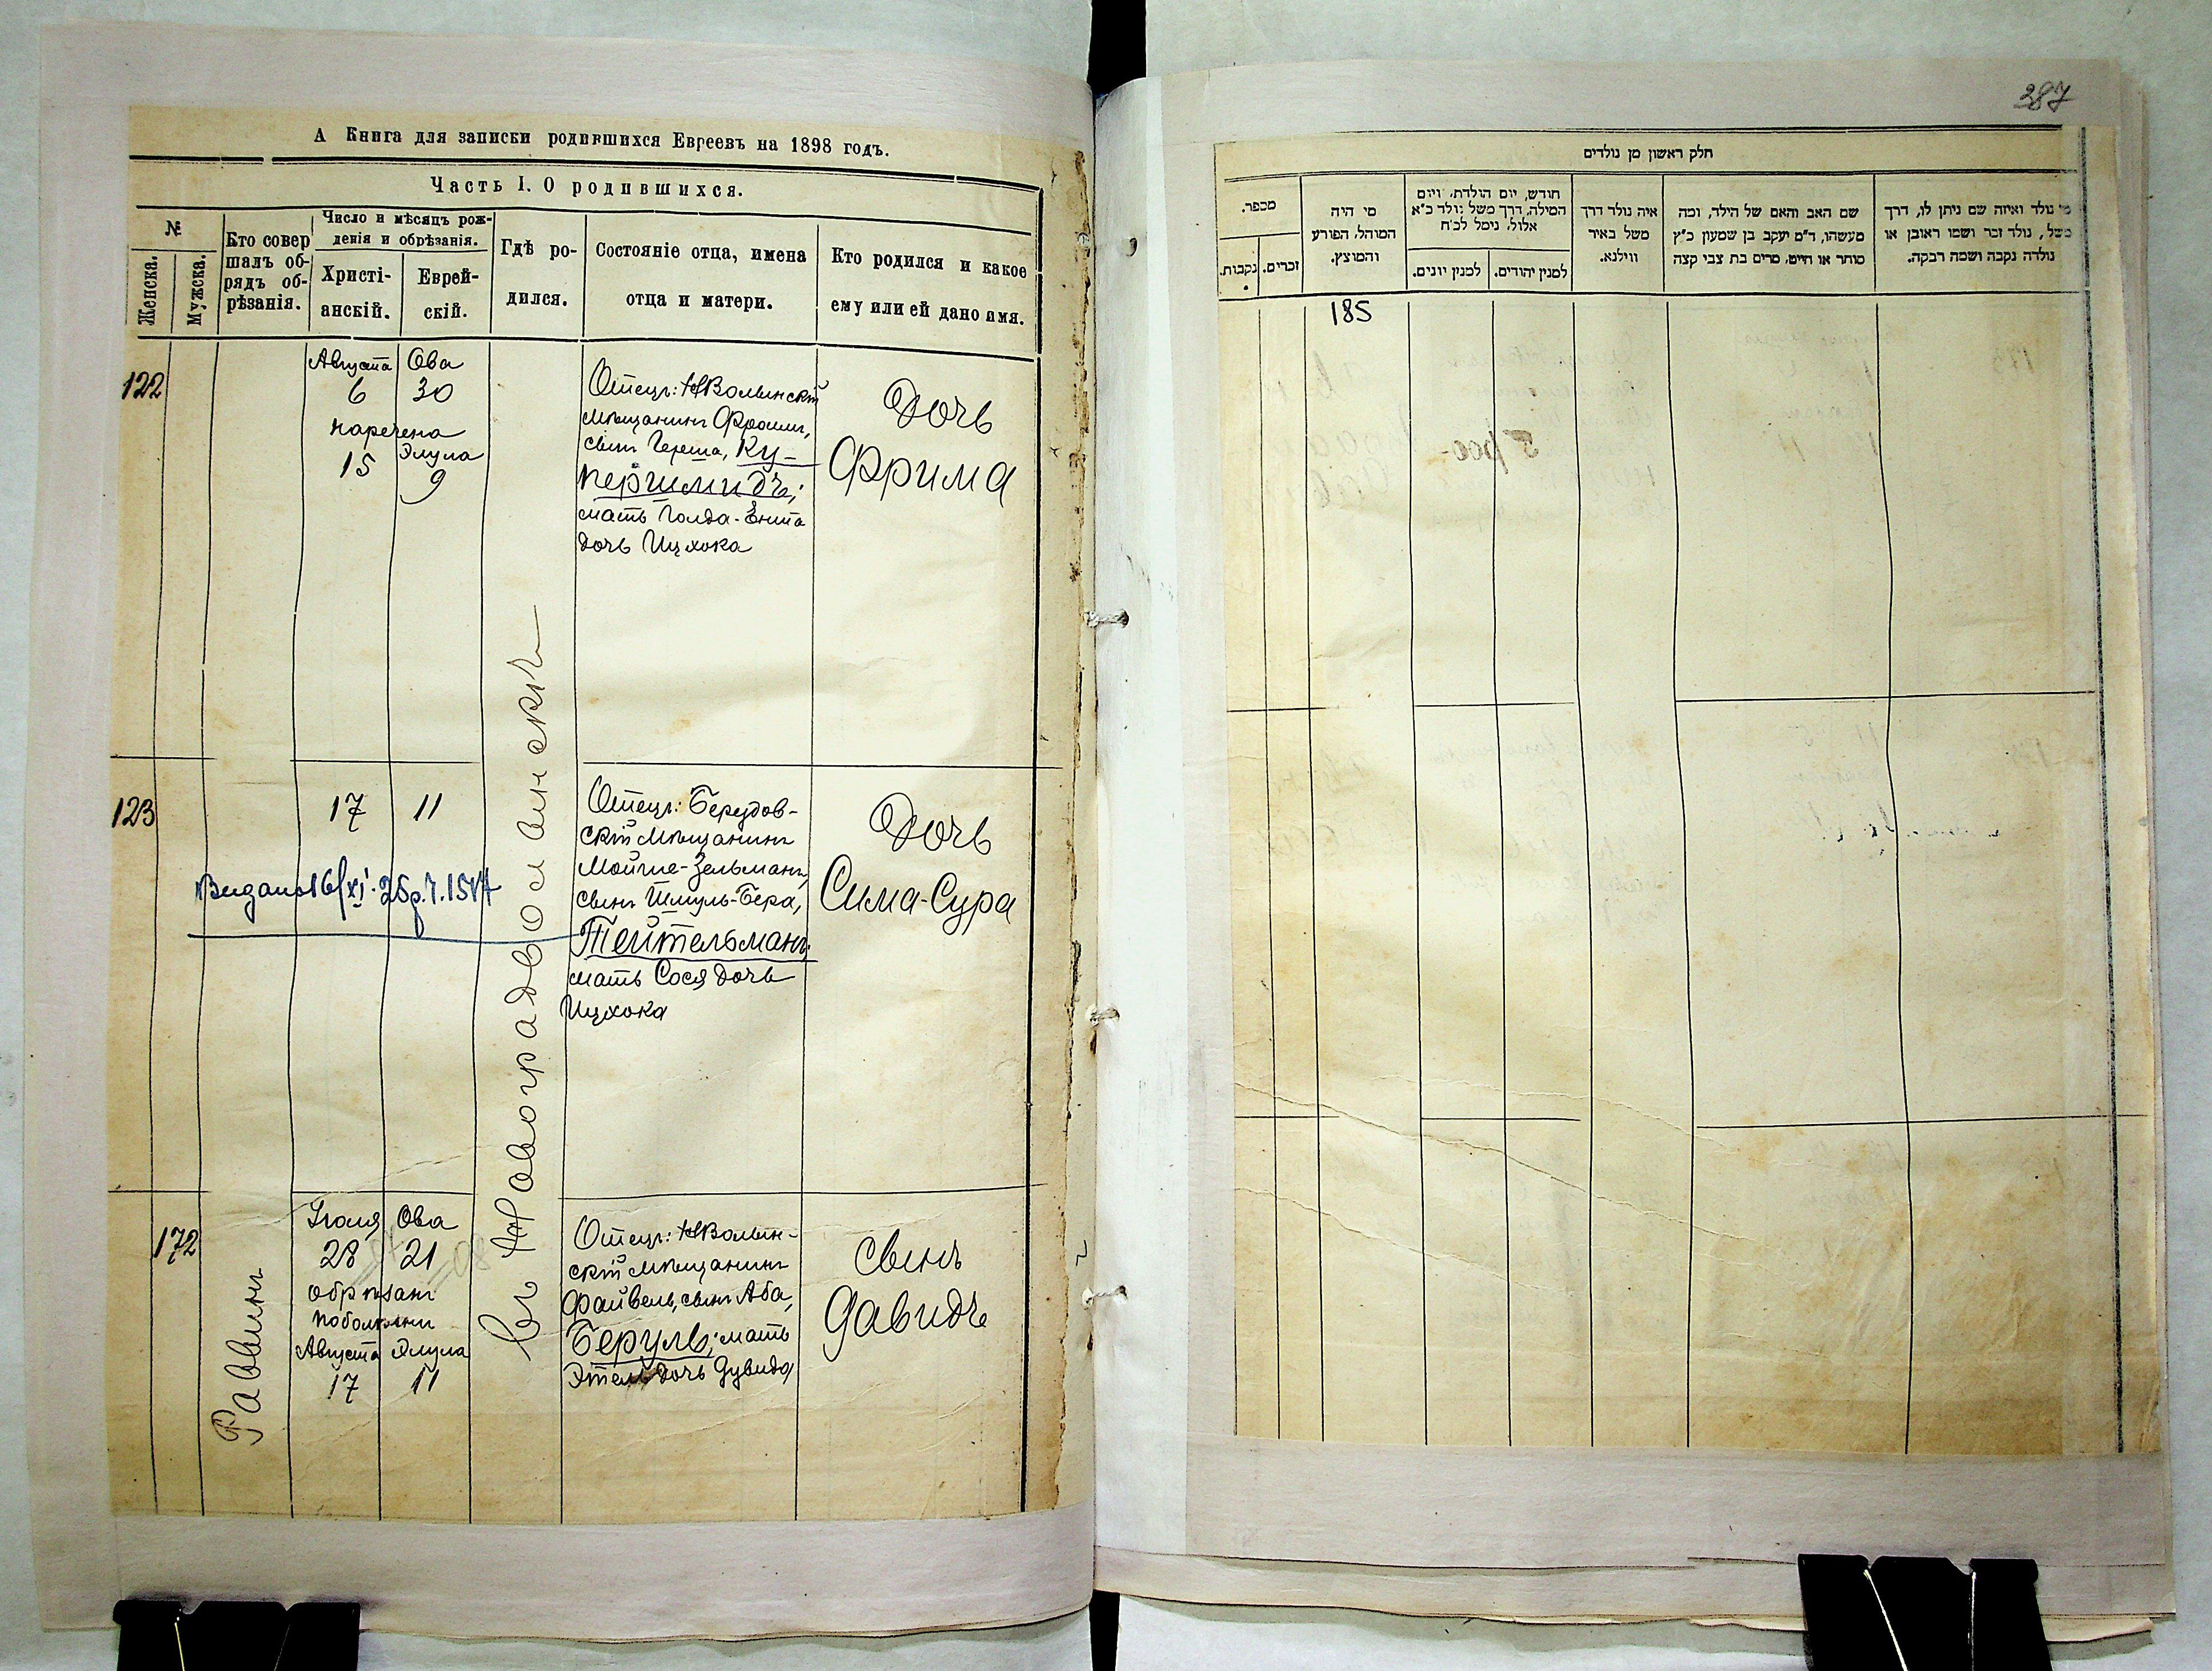 А Книга для записки родившихся Евреевъ на 1898 годъ.
Часть I. О родившихся.
№
Женска.
Мужска.
Кто совер
шалъ об-
рядъ об-
рѣзанія.
Число и мѣсяцъ рож-
денія и обрѣзанія.
Христі-
анскій.
Еврей-
скій.
Гдѣ ро-
дился.
Состояніе отца, имена
отца и матери.
Кто родился и какое
ему или ей дано имя.
122
Августа Ова
6 30
наречена
Элула
15 9
Отецъ: НВолынскій
мѣщанинъ Фроимъ,
сынъ Герша, Ку-
першмидъ;
мать Голда-Ента
дочь Ицхока
Дочь
Фрима
123
17 11
Видано 16/XI
Отецъ: Берездов-
скій мѣщанинъ
Мойше-Зельманъ,
сынъ Шмуль-Бера,
Тейтельманъ;
мать Сося дочь
Ицхока
Дочь
Сима-Сура
Въ Новоградволынскѣ
172
Раввинъ
Іюля Ова
28 21
обрѣзанъ
по болѣзни
Августа Элула
17 11
Отецъ: НВолын-
скій мѣщанинъ
Файвель, сынъ Аба,
Беруль; мать
Этель дочь Дувида
сынъ
Давидъ
387
חלק ראשון מן נולדים
מספר.
נקבות.
זכרים.
מי היה
המוהל, הפורע
והמוצץ.
חודש, יום הולדת, ויום
המילה, דרך משל נולד כ"א
אלול, נימל לכ"ח
למנין יונים.
למנין יהודים.
איה נולד דרך
משל באיר
ווילנא.
שם האב והאם של הילד, ומה
מעשהו, ד"מ יעקב בן שמעון כ"ץ
סוחר או חייט, מרים בת צבי קצה
מי נולד ואיזה שם ניתן לו, דרך
משל, נולד זכר ושמו ראובן או
נולדה נקבה ושמה רבקה.
185